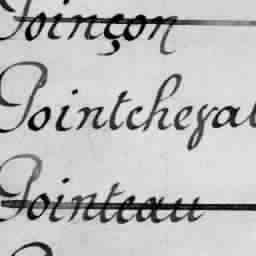 Poinçon
Pointcheval
Pointeau